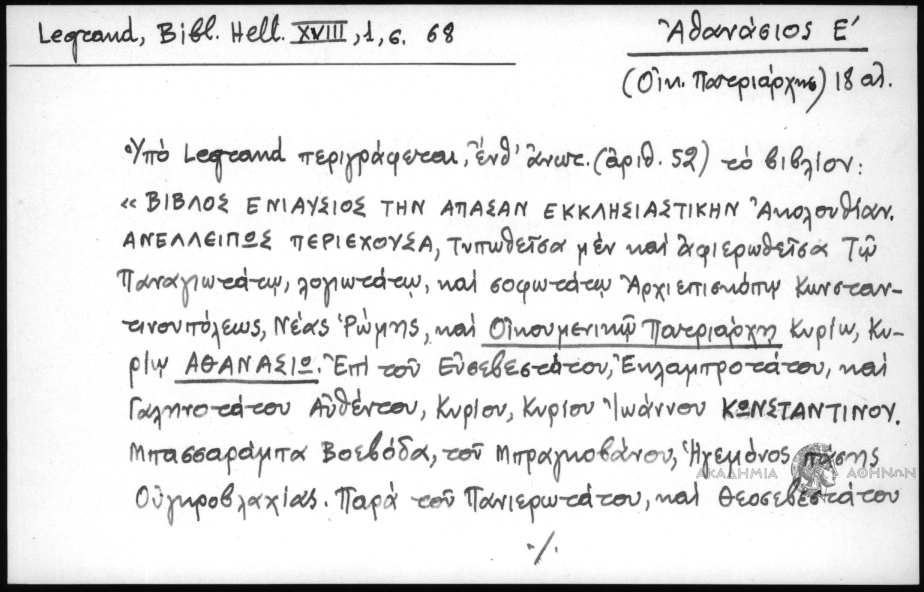 Legrand, Bibl. Hell. XVIII, 1, σ. 68
Ἀθανάσιος Ε'
(Οἰκ. Πατριάρχης) 18 αἰ.
Ὑπὸ Legrand περιγράφεται, ἔνθ' ἄνωτ. (ἀριθ. 52) τὸ βιβλίον:
« ΒΙΒΛΟΣ ΕΝΙΑΥΣΙΟΣ ΤΗΝ ΑΠΑΣΑΝ ΕΚΚΛΗΣΙΑΣΤΙΚΗΝ Ἀκολουθίαν.
ΑΝΕΛΛΕΙΠΩΣ ΠΕΡΙΕΧΟΥΣΑ, Τυπωθεῖσα μέν καὶ ἀφιερωθεῖσα Τῷ
Παναγιωτάτῳ, λογιωτάτῳ, καὶ σοφωτάτῳ Ἀρχιεπισκόπῳ Κωνσταν-
τινουπόλεως, Νέας Ῥώμης, καὶ Οἰκουμενικῷ Πατριάρχῃ Κυρίῳ, Κυ-
ρίῳ ΑΘΑΝΑΣΙΩ. Ἐπὶ τοῦ Εὐσεβεστάτου, Ἐκλαμπροτάτου, καὶ
Γαληνοτάτου Αὐθέντου, Κυρίου, Κυρίου Ἰωάννου ΚΩΝΣΤΑΝΤΙΝΟΥ.
Μπασσαράμπα Βοεβόδα, τοῦ Μπραγκοβάνου, Ἡγεμόνος πάσης
Οὐγκροβλαχίας. Παρὰ τοῦ Πανιερωτάτου, καὶ Θεοσεβεστάτου
./.
ΑΚΑΔΗΜΙΑ ΑΘΗΝΩΝ